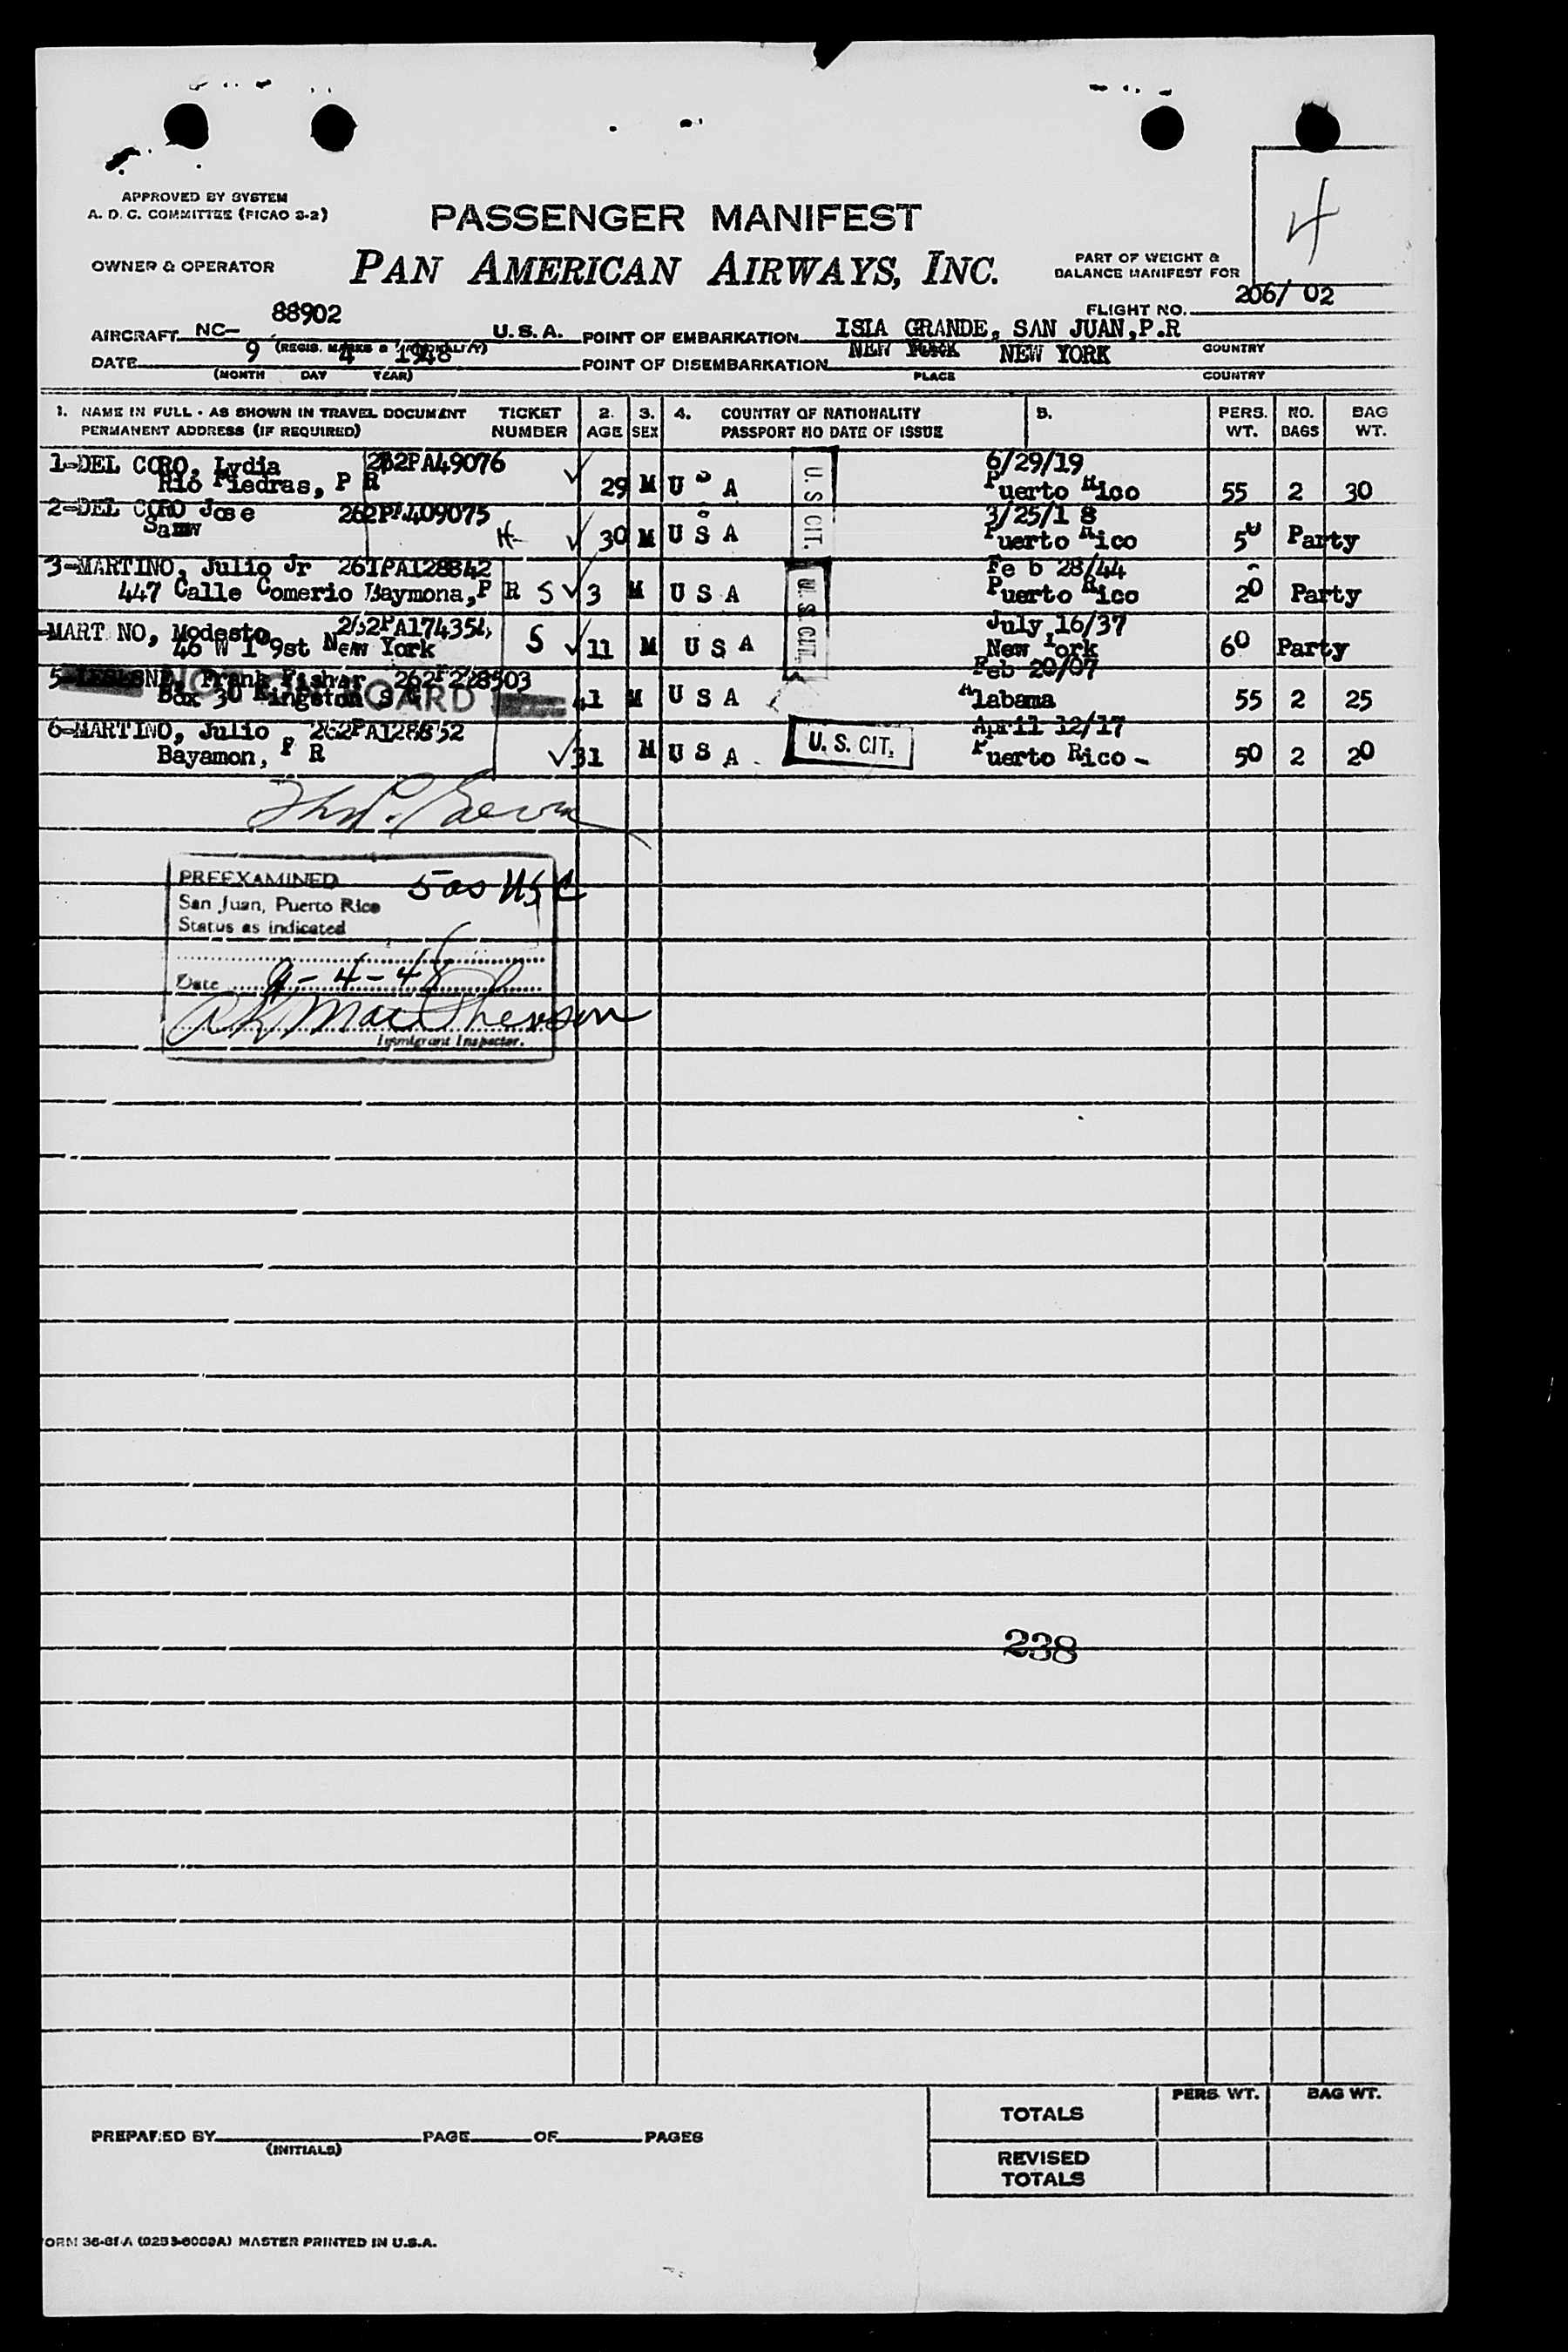 4
APPROVED BY SYSTEM
A. D. C. COMMITTEE (PICAO 3-2)
PASSENGER MANIFEST
OWNER & OPERATOR
PAN AMERICAN AIRWAYS, INC.
PART OF WEIGHT &
BALANCE MANIFEST FOR
FLIGHT NO. 206/ 02
AIRCRAFT NC- 88902 U.S.A. POINT OF EMBARKATION ISLA GRANDE, SAN JUAN,P.R
(REGIS. MARKS & NATIONALITY) COUNTRY
DATE 9 4 1948 POINT OF DISEMBARKATION NEW YORK NEW YORK
(MONTH DAY YEAR) PLACE COUNTRY
1. NAME IN FULL - AS SHOWN IN TRAVEL DOCUMENT TICKET 2. 3. 4. COUNTRY OF NATIONALITY 5. PERS. NO. BAG
PERMANENT ADDRESS (IF REQUIRED) NUMBER AGE SEX PASSPORT NO DATE OF ISSUE WT. BAGS WT.
1-DEL CORO, Lydia 262PA49076 6/29/19
Rio Piedras, P R 29 M U S A U. S CIT. Puerto Rico 55 2 30
2-DEL CORO Jose 262PA409075 3/25/1 8
30 M U S A Puerto Rico 50 Party
3-MARTINO, Julio Jr 261PA128842 Fe b 28/44
447 Calle Comerio Baymona,P R S 3 M U S A U. S. CIT. Puerto Rico 20 Party
-MART NO, Modesto 262PA174354 July 16/37
46 W 1 9st New York S 11 M U S A New York 60 Party
5- Frank Fisher 262P228503 Feb 20/07
Box 30 Kingston S 41 M U S A Alabama 55 2 25
6-MARTINO, Julio 262PA128852 April 12/17
Bayamon, P R 31 M U S A U. S. CIT. Puerto Rico - 50 2 20
PREEXAMINED 5 as USC
San Juan, Puerto Rico
Status as indicated
Date 9-4-48
MacPherson
Immigrant Inspector.
238
PERS WT. BAG WT.
TOTALS
PREPARED BY PAGE OF PAGES
(INITIALS)
REVISED
TOTALS
ORM 36-81-A (0253-6009A) MASTER PRINTED IN U.S.A.